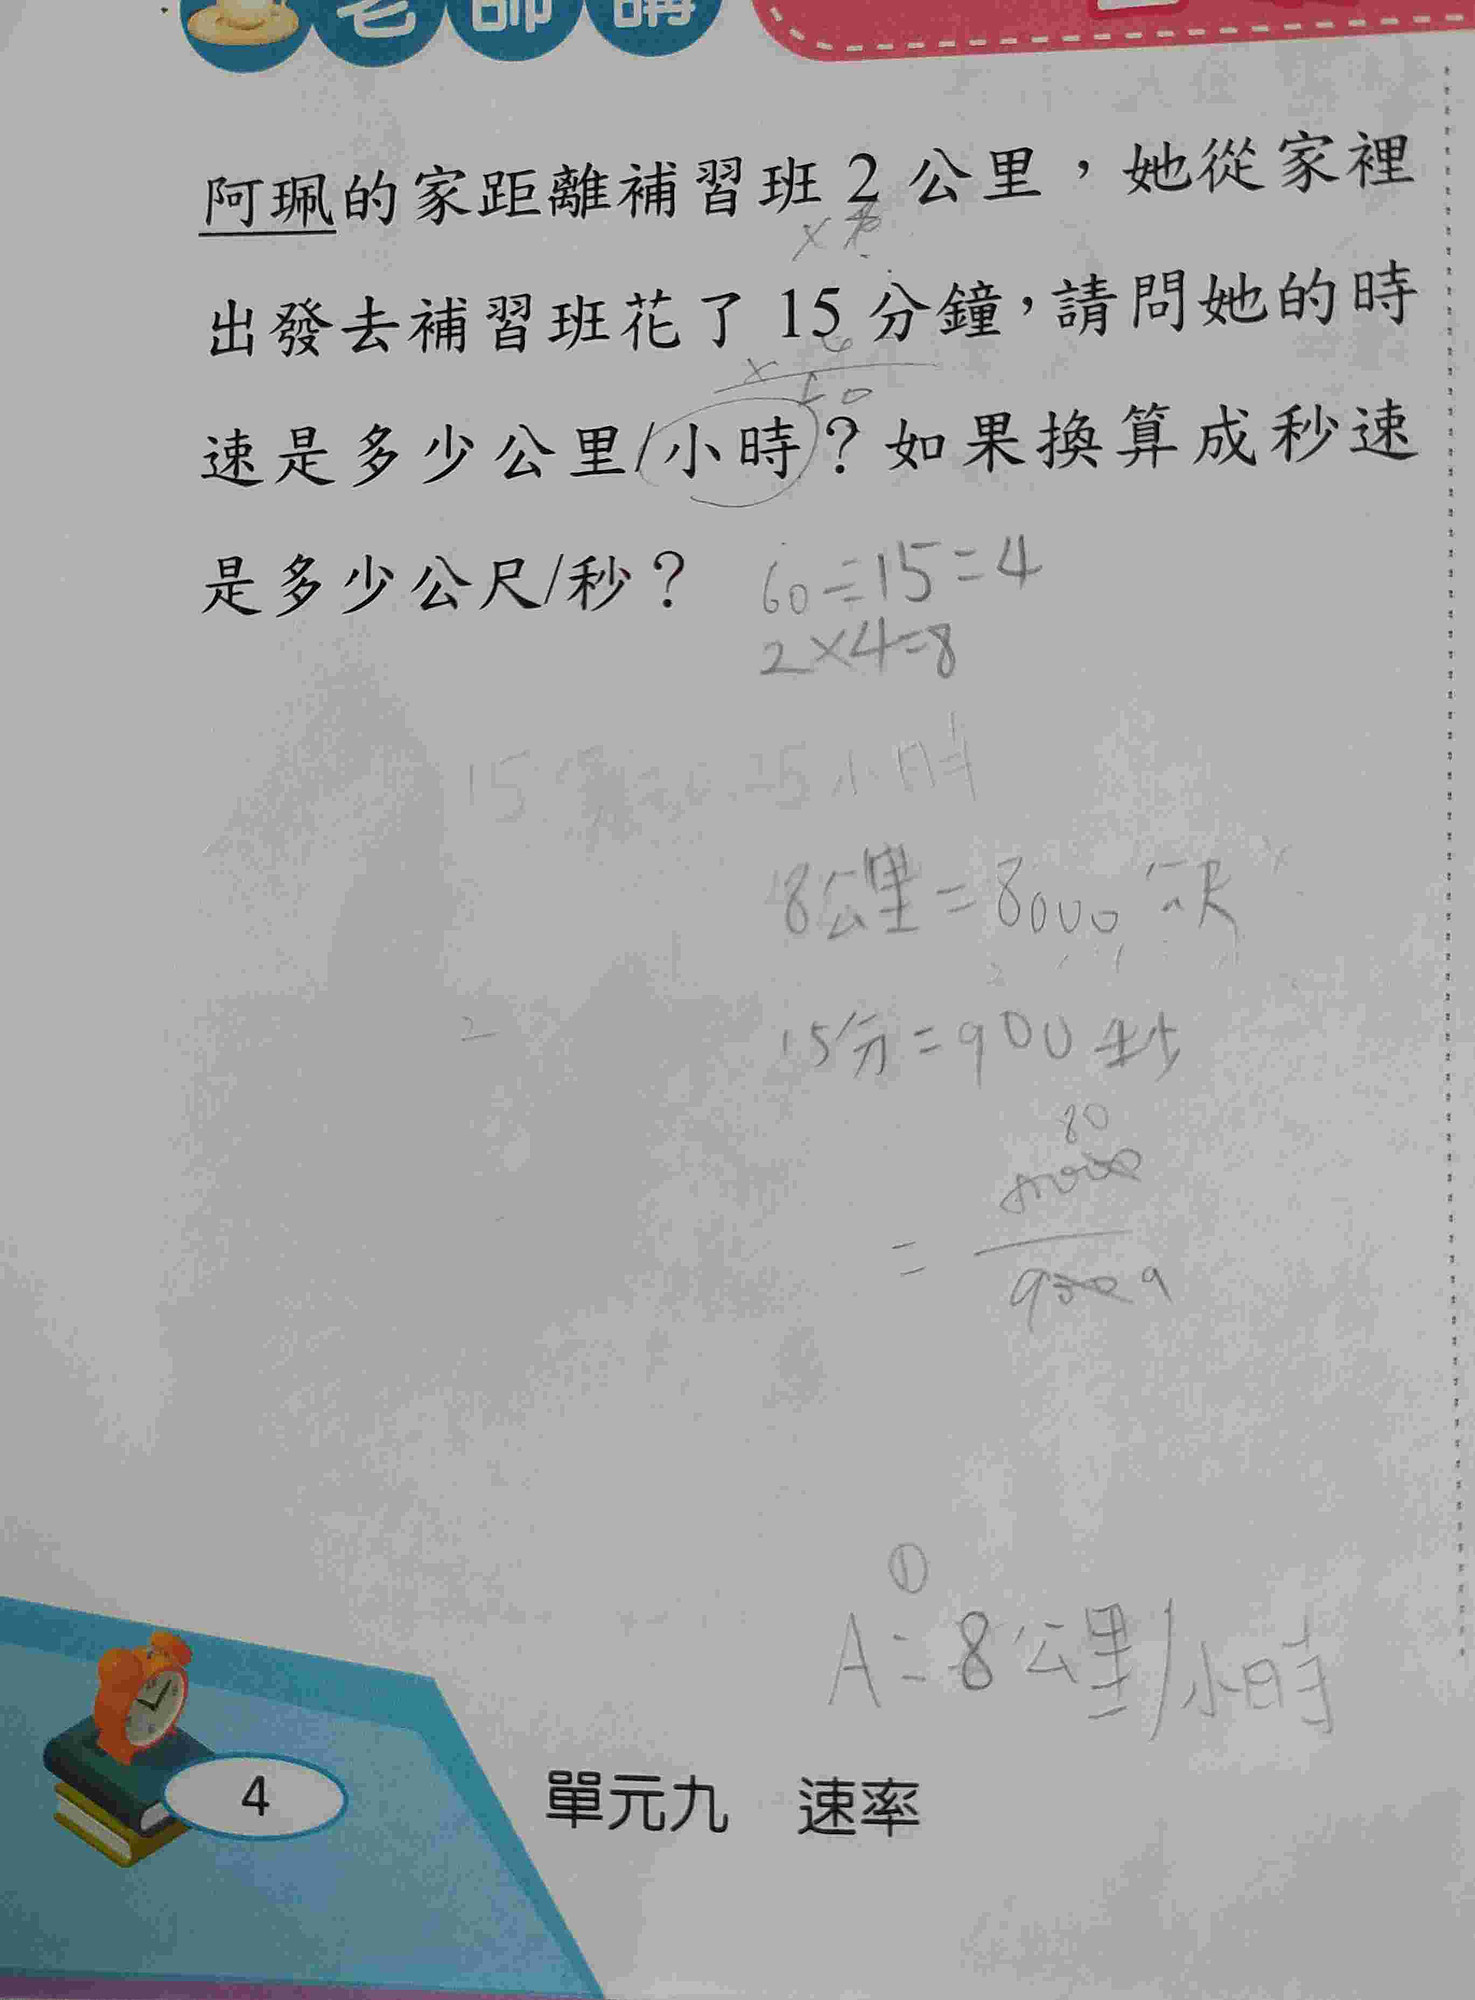 老師講
阿珮的家距離補習班 2 公里，她從家裡
出發去補習班花了 15 分鐘，請問她的時
速是多少公里/小時？如果換算成秒速
是多少公尺/秒？
60÷15=4
2×4=8
15 小時
8公里=8000公尺
2
15分=900秒
80
=
900 9
①
A=8公里/小時
4
單元九 速率